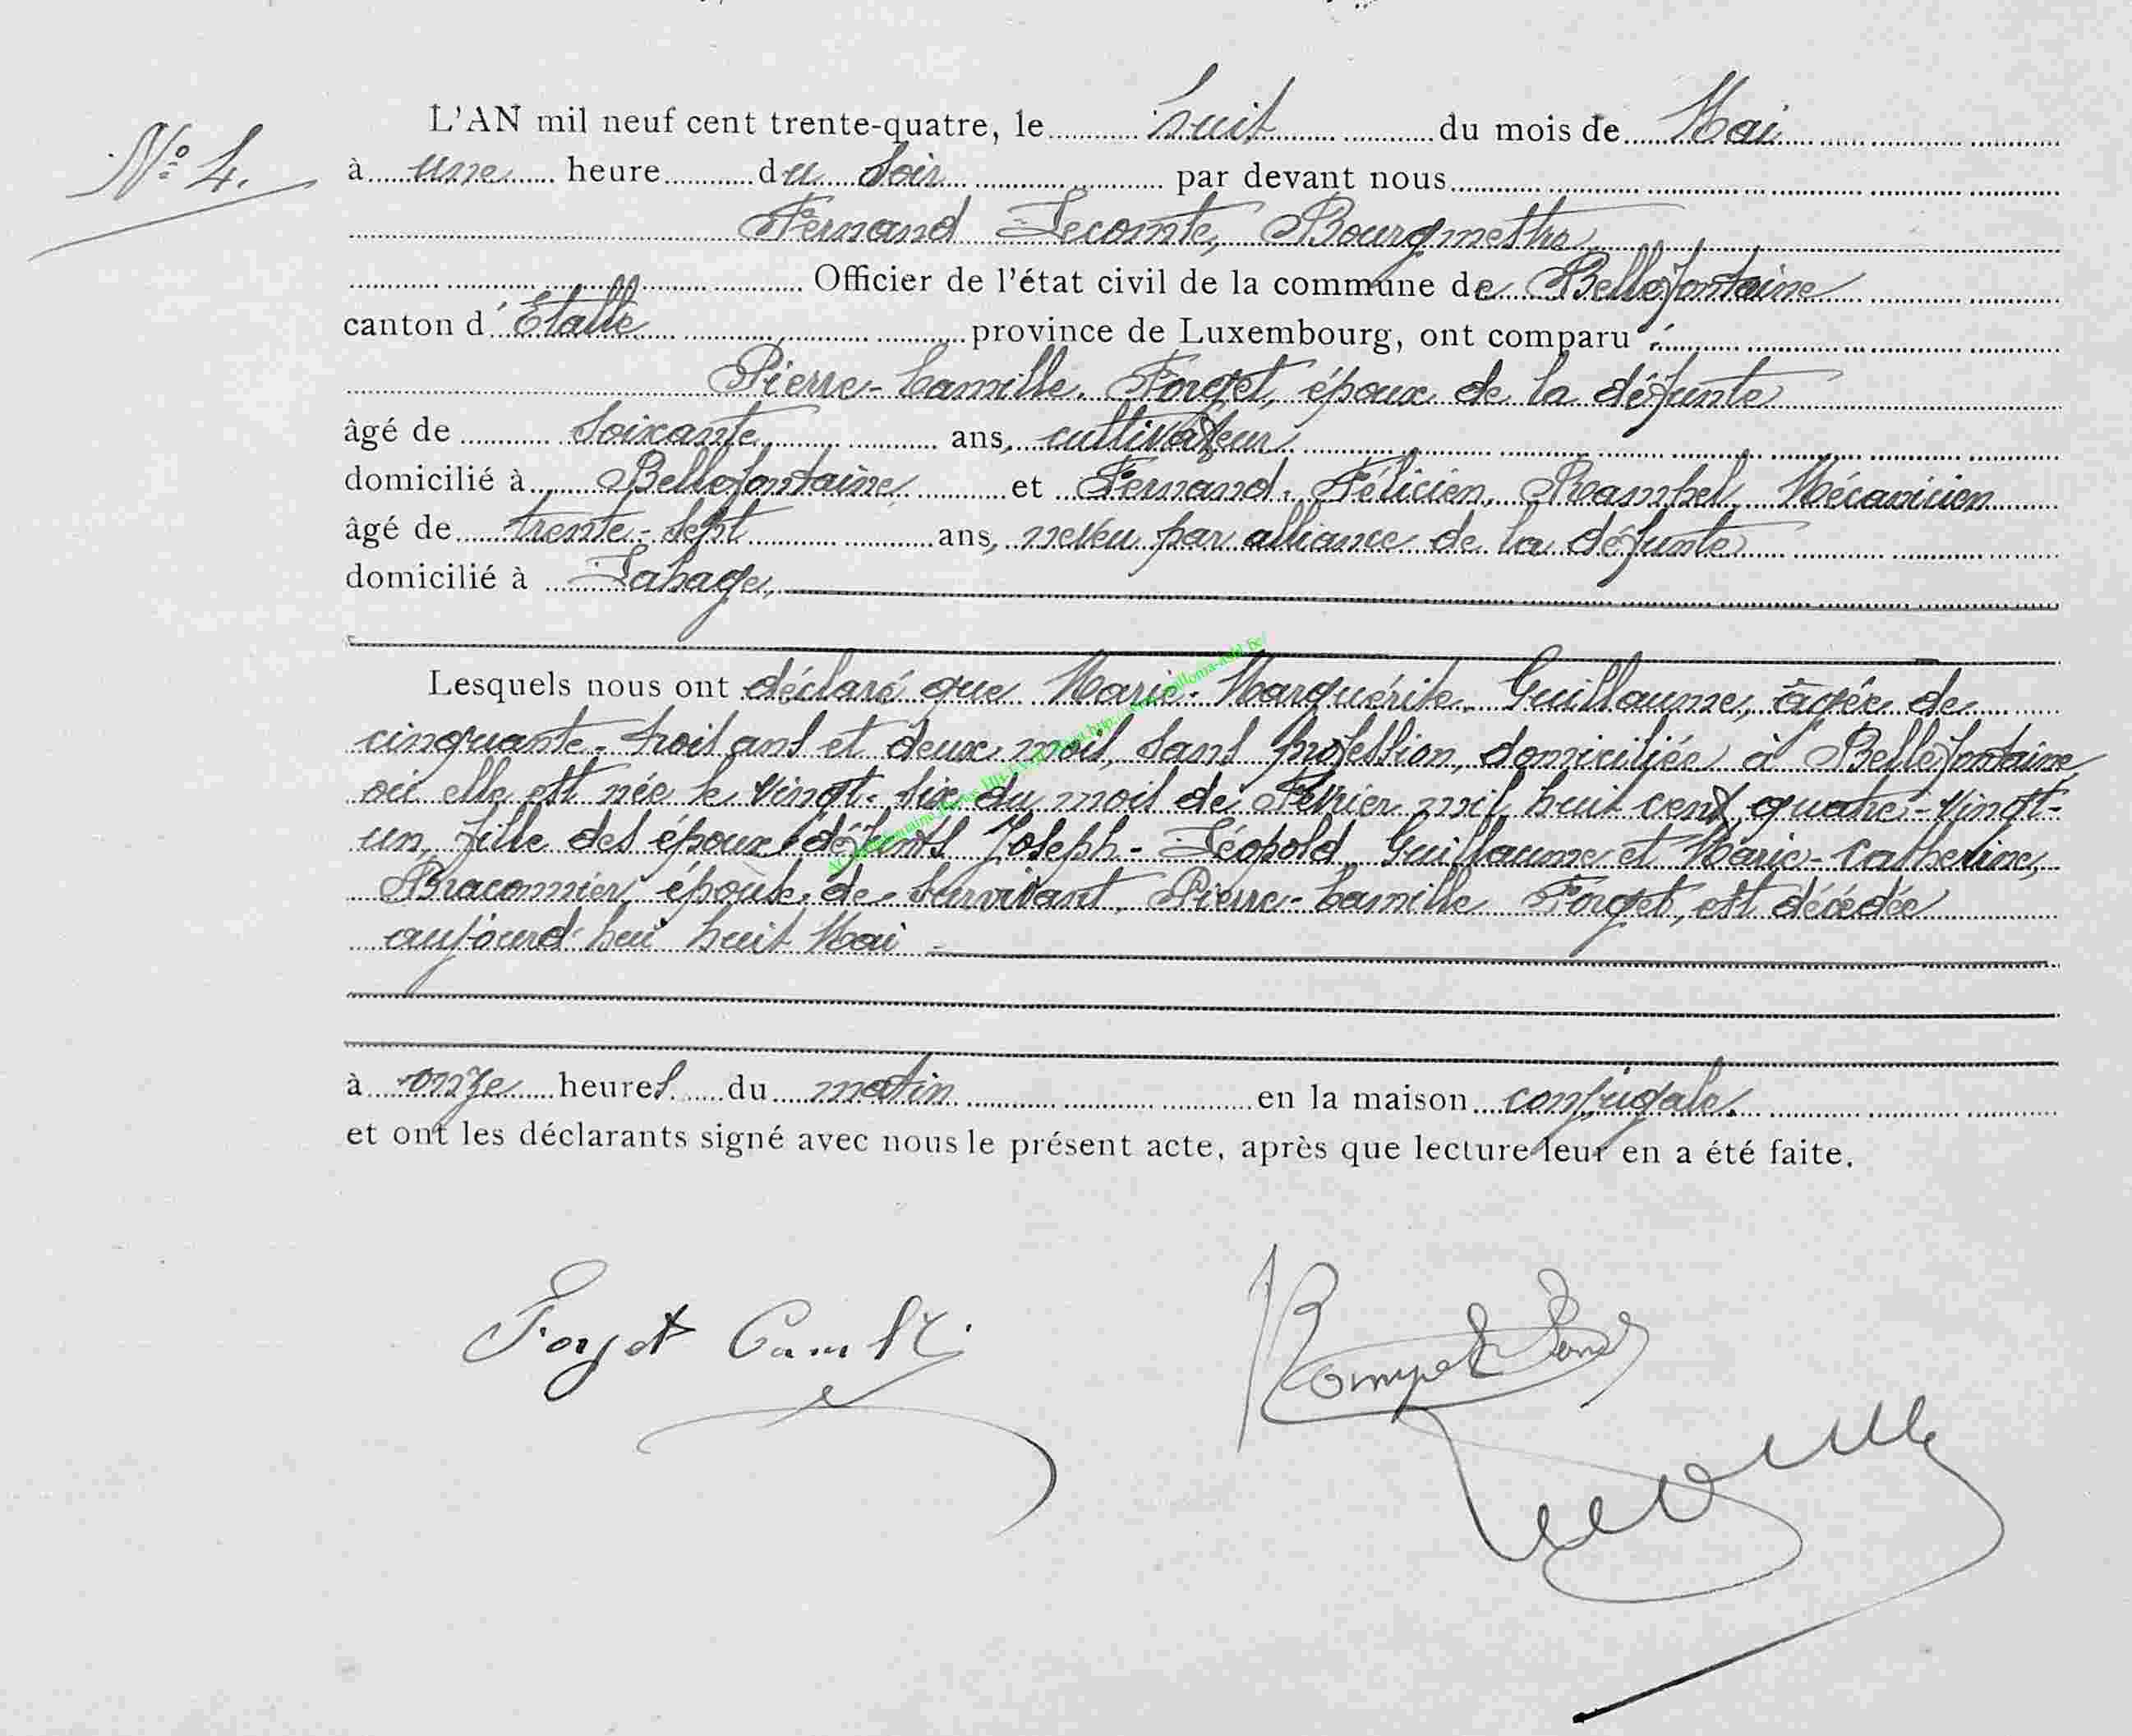 N° 4.
L'AN mil neuf cent trente-quatre, le huit du mois de Mai
à une heure du soir par devant nous
Fernand Lecomte, Bourgmestre
Officier de l'état civil de la commune de Bellefontaine
canton d'Etalle province de Luxembourg, ont comparu :
Pierre-Camille Forget, époux de la défunte
âgé de soixante ans, cultivateur
domicilié à Bellefontaine et Fernand Félicien Mécanicien
âgé de trente-sept ans, neveu par alliance de la défunte
domicilié à Lahage,
Lesquels nous ont déclaré que Marie-Marguérite Guillaume, âgée de
cinquante-trois ans et deux mois, sans profession, domiciliée à Bellefontaine
où elle est née le vingt-six du mois de Février mil huit cent quatre-vingt-
un, fille des époux défunts Joseph-Léopold Guillaume et Marie-Catherine
Braconnier, épouse de survivant Pierre-Camille Forget, est décédée
aujourd'hui huit Mai
à onze heures du matin en la maison conjugale.
et ont les déclarants signé avec nous le présent acte, après que lecture leur en a été faite.
Forget Camille